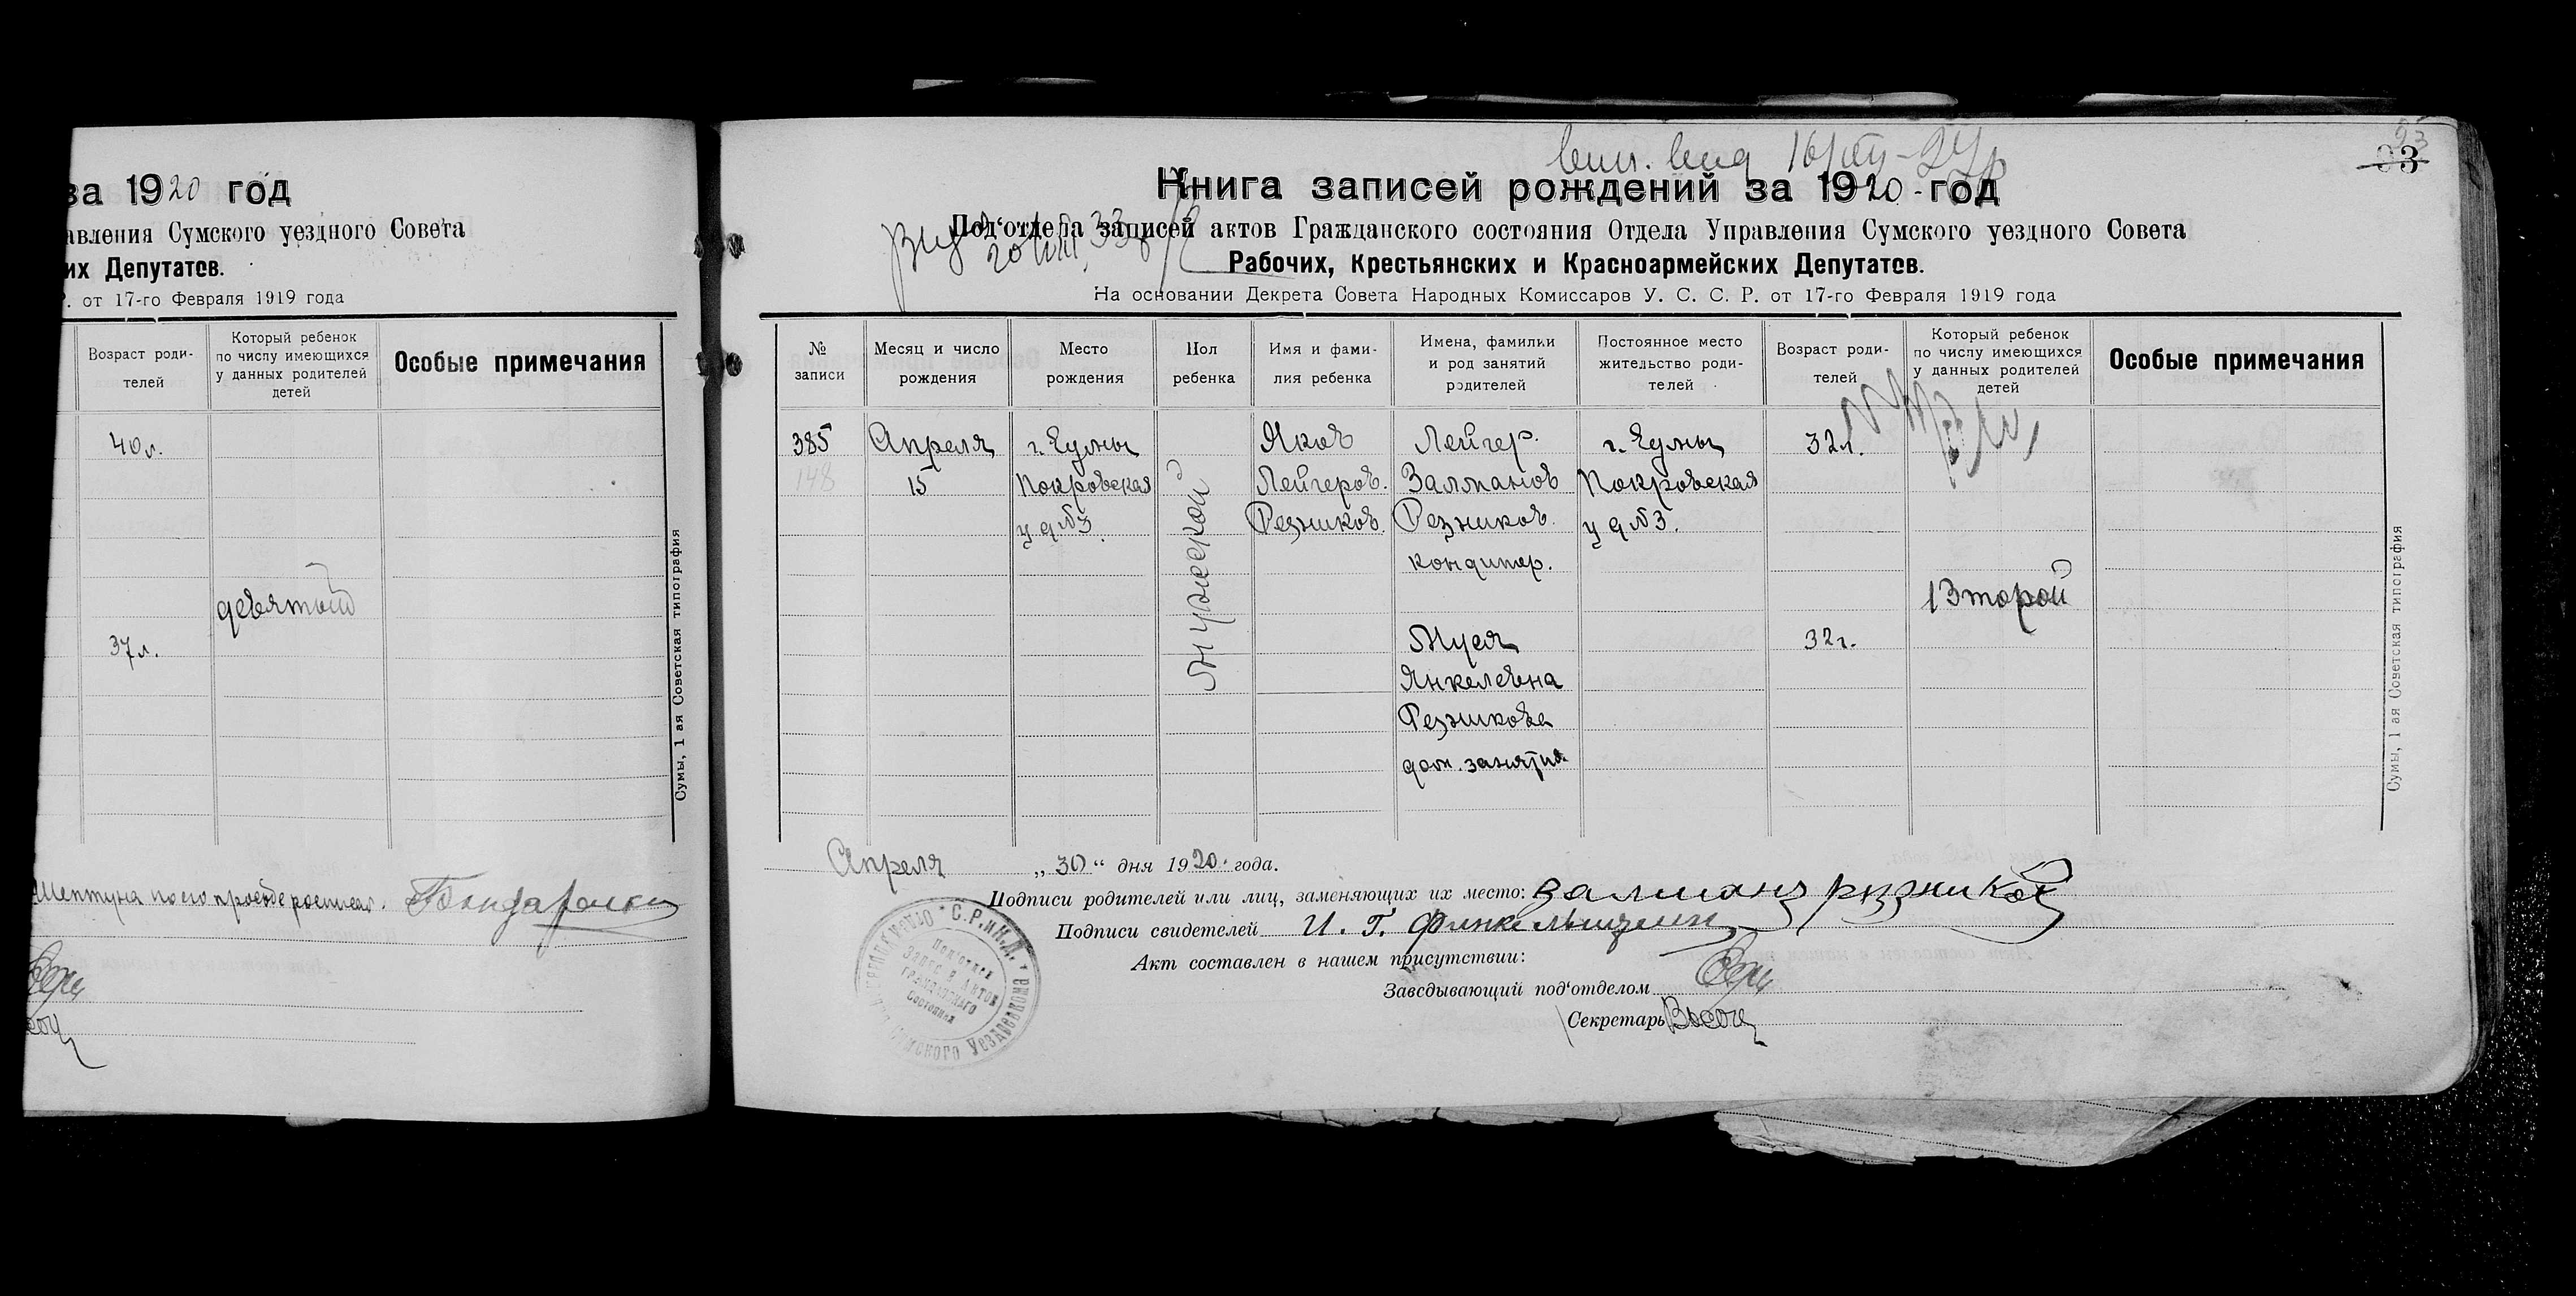 за 1920 год
авления Сумского уездного Совета
их Депутатов.
Р. от 17-го Февраля 1919 года
Возраст роди-
телей
Который ребенок
по числу имеющихся
у данных родителей
детей
Особые примечания
40 л.
девятый
37 л.
Сумы, 1 ая Советская типография
Бондаренко
93
83
Книга записей рождений за 1920 год
Под‘отдела записей актов Гражданского состояния Отдела Управления Сумского уездного Совета
Рабочих, Крестьянских и Красноармейских Депутатов.
На основании Декрета Совета Народных Комиссаров У. С. С. Р. от 17-го Февраля 1919 года
№
записи
Месяц и число
рождения
Место
рождения
Пол
ребенка
Имя и фами-
лия ребенка
Имена, фамилии
и род занятий
родителей
Постоянное место
жительство роди-
телей
Возраст роди-
телей
Который ребенок
по числу имеющихся
у данных родителей
детей
Особые примечания
385
148
Апреля
15
г. Сумы
Покровская
у д №3.
мужеской
Яков
Лейгеров.
Резников.
Лейгер.
Залманов
Резников.
кондитер.
Муся
Янкелевна
Резникова
дом. занятия
г. Сумы
Покровская
у д №3.
32 л.
32 г.
Второй
Сумы, 1 ая Советская типография
Апреля „30“ дня 1920 года.
Подписи родителей или лиц, заменяющих их место: Залманъ Резников
Подписи свидетелей И. Г. Финкельштейн
Акт составлен в нашем присутствии:
Заведывающий под‘отделом
Секретарь
Под‘отдел
Запис. Актов
Гражданского
Состояния